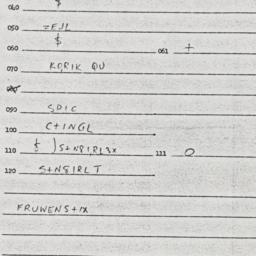 040 $
050 =FJL
060 $ 061 +
070 KORIK QU
080
090 SDIC
100 C+INGL
110 $ )S+N8IRL3X 111 O
120 S+N8IRL T
FRUWENS+IX